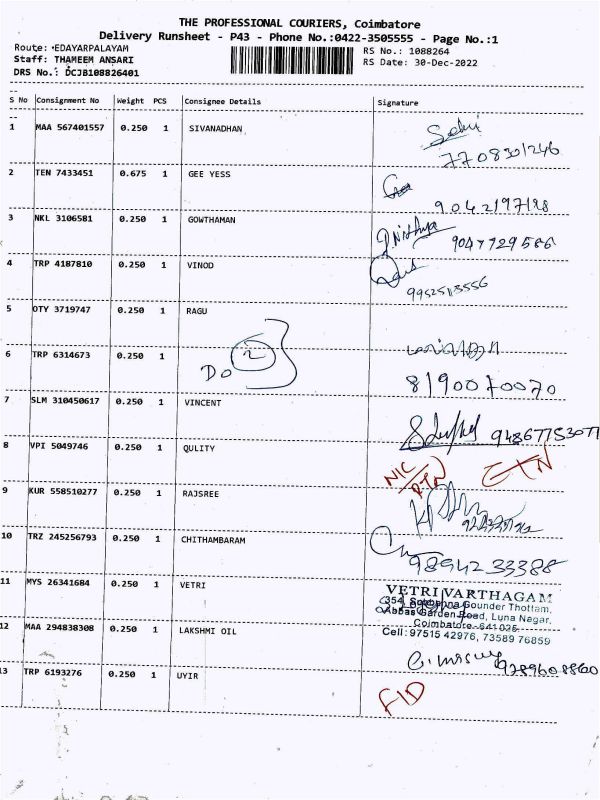 THE PROFESSIONAL COURIERS, Coimbatore
Delivery Runsheet - P43 - Phone No.:0422-3505555 - Page No.:1
Route: EDAYARPALAYAM
RS No.: 1088264
Staff: THAMEEM ANSARI
RS Date: 30-Dec-2022
DRS No.: DCJB108826401
S No Consignment No Weight PCS Consignee Details Signature
1 MAA 567401557 0.250 1 SIVANADHAN
7708301246
2 TEN 7433451 0.675 1 GEE YESS
9042197198
3 NKL 3106581 0.250 1 GOWTHAMAN
Nithya 9047729586
4 TRP 4187810 0.250 1 VINOD
9952513556
5 OTY 3719747 0.250 1 RAGU
6 TRP 6314673 0.250 1
Do 2
8190070070
7 SLM 310450617 0.250 1 VINCENT
9486775307
8 VPI 5049746 0.250 1 QULITY
NIC/RTN
9 KUR 558510277 0.250 1 RAJSREE
10 TRZ 245256793 0.250 1 CHITHAMBARAM
9894233388
11 MYS 26341684 0.250 1 VETRI
VETRI VARTHAGAM
354, Gounder Thottam,
Abbas Garden Road, Luna Nagar,
Coimbatore - 641025
Cell: 97515 42976, 73589 76859
12 MAA 294838308 0.250 1 LAKSHMI OIL
9789608860
13 TRP 6193276 0.250 1 UYIR
FID